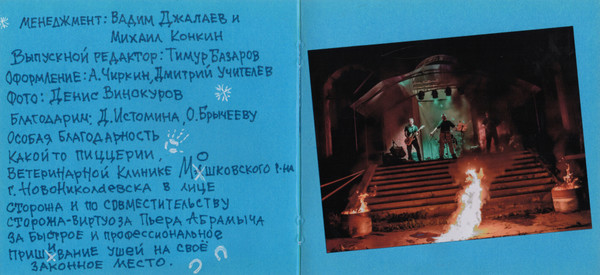 Менеджмент: Вадим Джалаев и
Михаил Конкин
Выпускной редактор: Тимур Базаров
Оформление: А.Чиркин, Дмитрий Учителев
Фото: Денис Винокуров
Благодарим: Д.Истомина, О.Брычееву
Особая благодарность
какой то пиццерии,
Ветеринарной Клинике Мошковского р-на
г. Новониколаевска в лице
сторожа и по совместительству
сторожа-виртуоза Пьера Абрамыча
за быстрое и профессиональное
пришивание ушей на своё
законное место.